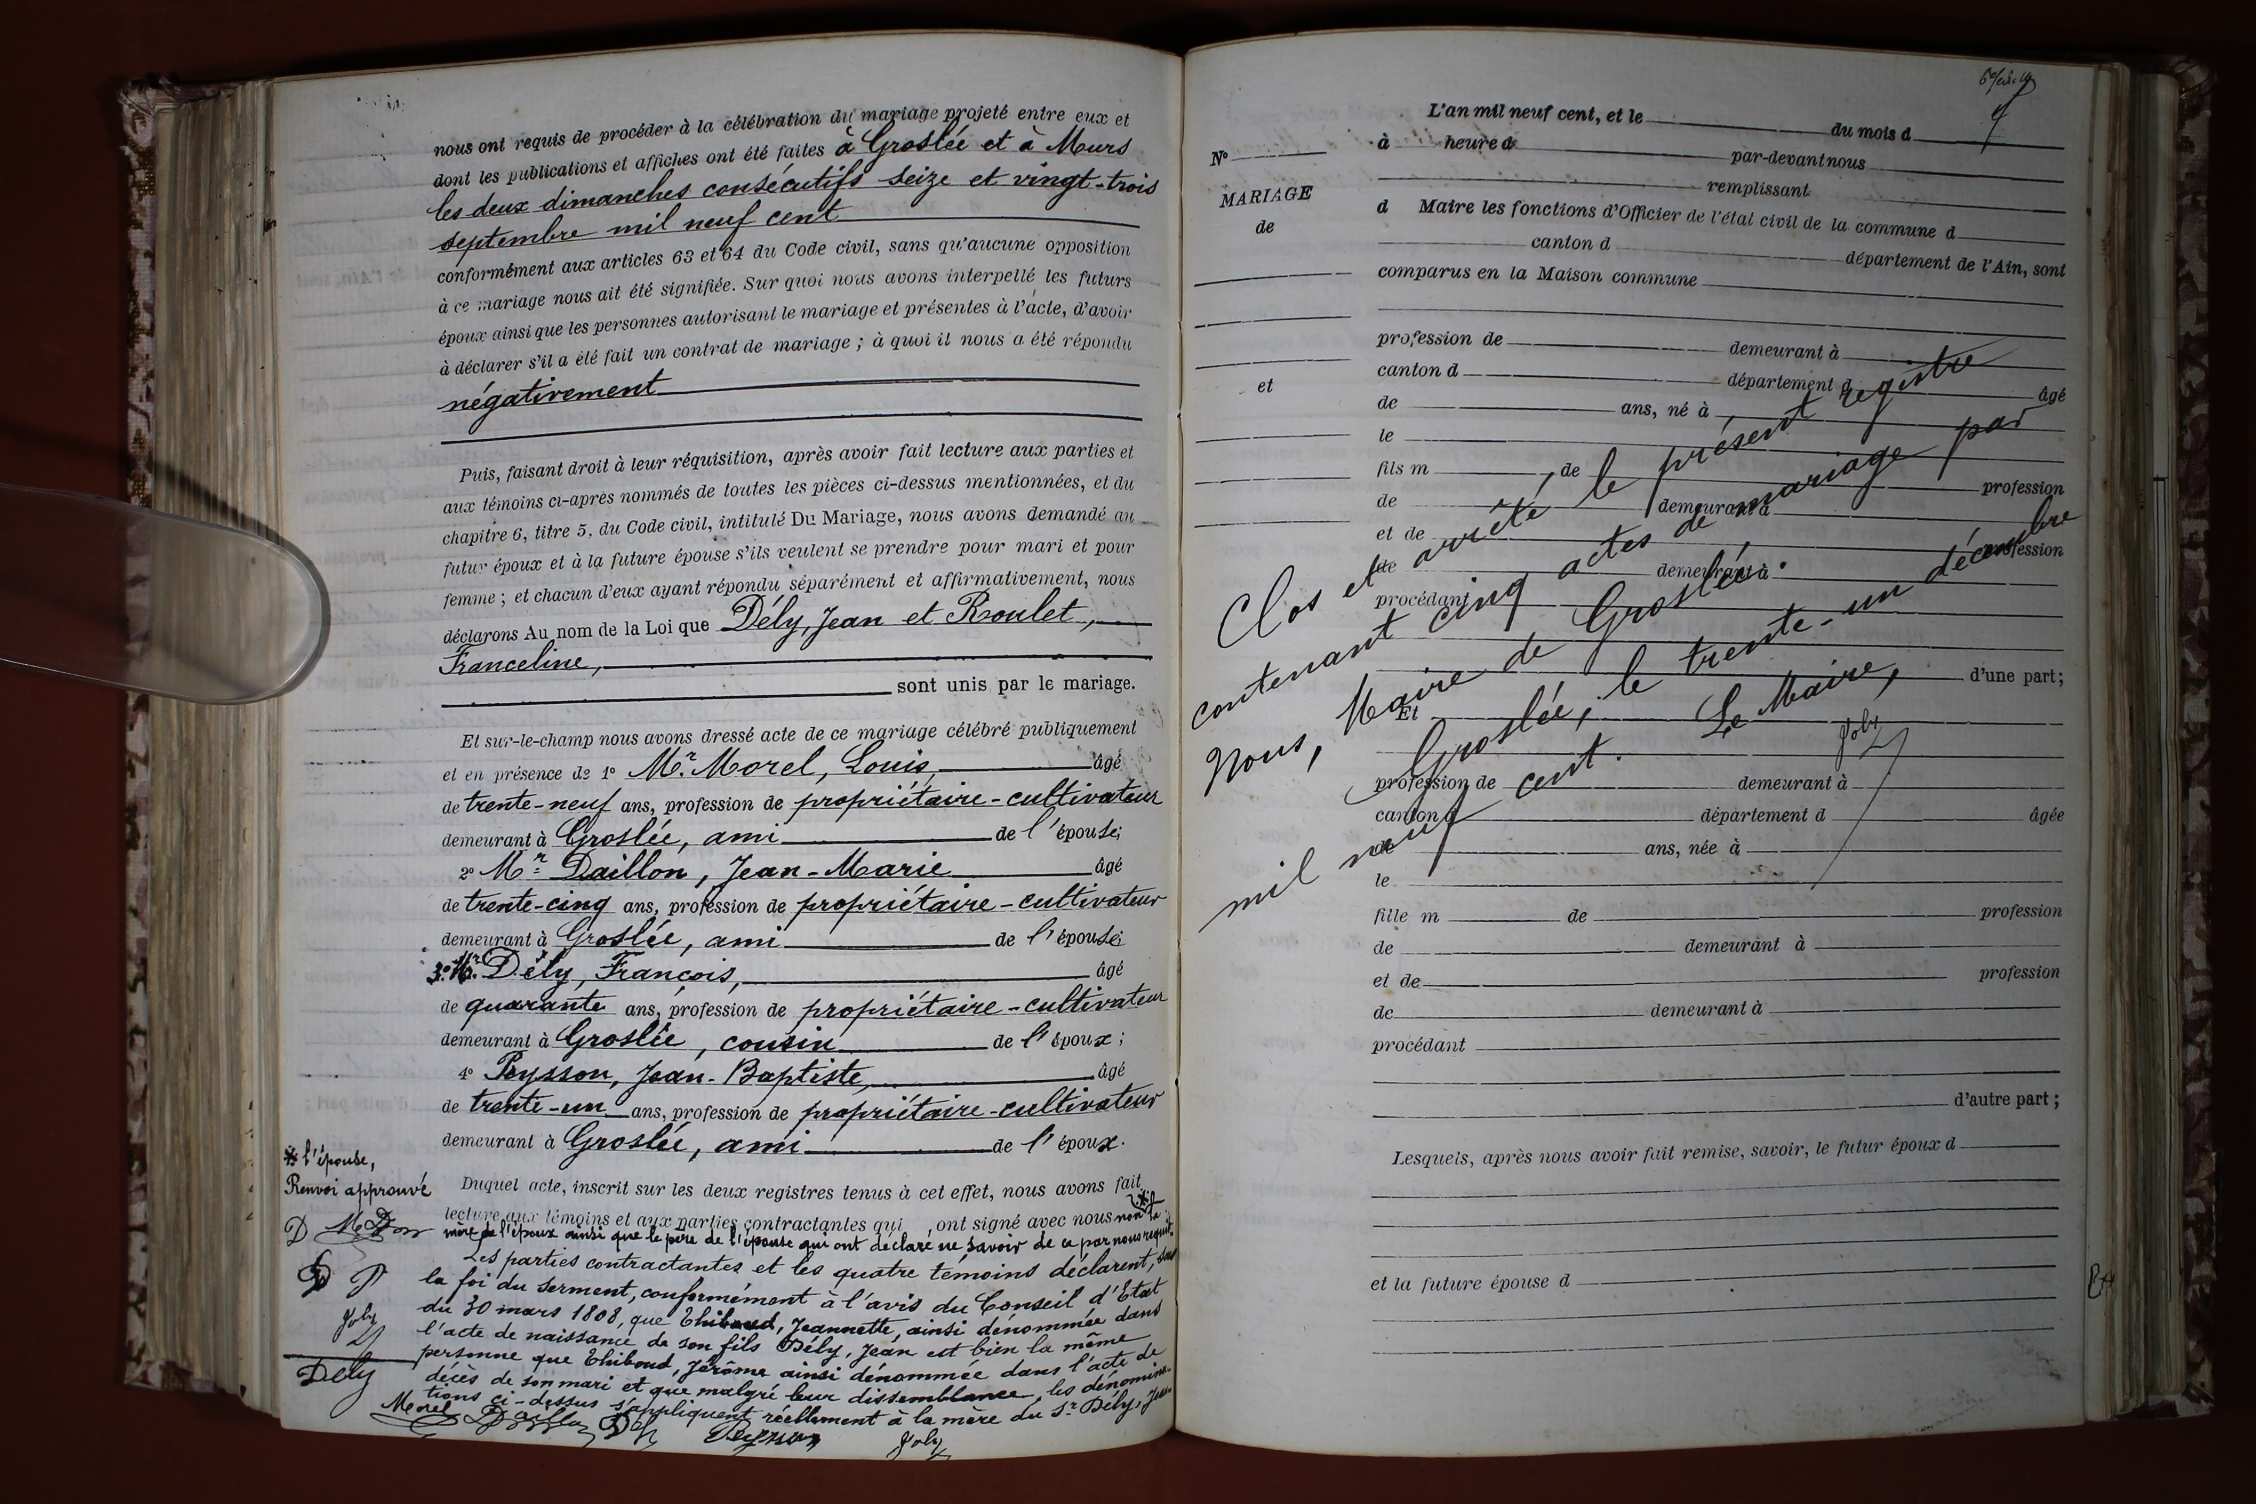 nous ont requis de procéder à la célébration du mariage projeté entre eux et
dont les publications et affiches ont été faites à Groslée et à Murs
les deux dimanches consécutifs seize et vingt-trois
septembre mil neuf cent
conformément aux articles 63 et 64 du Code civil, sans qu'aucune opposition
à ce mariage nous ait été signifiée. Sur quoi nous avons interpellé les futurs
époux ainsi que les personnes autorisant le mariage et présentes à l'acte, d'avoir
à déclarer s'il a été fait un contrat de mariage ; à quoi il nous a été répondu
négativement
Puis, faisant droit à leur réquisition, après avoir fait lecture aux parties et
aux témoins ci-après nommés de toutes les pièces ci-dessus mentionnées, et du
chapitre 6, titre 5, du Code civil, intitulé Du Mariage, nous avons demandé au
futur époux et à la future épouse s'ils veulent se prendre pour mari et pour
femme ; et chacun d'eux ayant répondu séparément et affirmativement, nous
déclarons Au nom de la Loi que Dély, Jean et Roulet,
Franceline,
sont unis par le mariage.
Et sur-le-champ nous avons dressé acte de ce mariage célébré publiquement
et en présence de 1° Mr. Morel, Louis, âgé
de trente-neuf ans, profession de propriétaire-cultivateur
demeurant à Groslée, ami de l'épouse;
2° Mr. Daillon, Jean-Marie âgé
de trente-cinq ans, profession de propriétaire-cultivateur
demeurant à Groslée, ami de l'épouse;
3° Mr. Dély, François, âgé
de quarante ans, profession de propriétaire-cultivateur
demeurant à Groslée, cousin de l'époux ;
4° Peysson, Jean-Baptiste, âgé
de trente-un ans, profession de propriétaire-cultivateur
demeurant à Groslée, ami de l'époux.
Duquel acte, inscrit sur les deux registres tenus à cet effet, nous avons fait
lecture aux témoins et aux parties contractantes qui ont signé avec nous non * la
mère de l'époux ainsi que le père de l'épouse qui ont déclaré ne savoir de ce par nous requis.
Les parties contractantes et les quatre témoins déclarent, sous
la foi du serment, conformément à l'avis du Conseil d'Etat
du 30 mars 1808, que Thiboud, Jeannette, ainsi dénommée dans
l'acte de naissance de son fils Dély, Jean est bien la même
personne que Thiboud, Jérôme ainsi dénommée dans l'acte de
décès de son mari et que malgré leur dissemblance, les dénomina-
tions ci-dessus s'appliquent réellement à la mère du Sr. Dély, Jean
* l'épouse,
Renvoi approuvé
D
D P
Joly
Dély
Morel Daillon Peysson Joly
L'an mil neuf cent, et le du mois d
à heure d par-devant nous
remplissant
d Maire les fonctions d'Officier de l'état civil de la commune d
canton d département de l'Ain, sont
comparus en la Maison commune
N°
MARIAGE
de
et
profession de demeurant à
canton d département d âgé
de ans, né à
le
fils m de profession
de demeurant à
et de profession
de demeurant à
procédant
d'une part ;
Et
profession de demeurant à
canton d département d âgée
de ans, née à
le
fille m de profession
de demeurant à
et de profession
de demeurant à
procédant
d'autre part ;
Lesquels, après nous avoir fait remise, savoir, le futur époux d
et la future épouse d
Clos et arrêté le présent registre
contenant cinq actes de mariage par
Nous, Maire de Groslée.
Groslée, le trente-un décembre
mil neuf cent.
Le Maire,
Joly